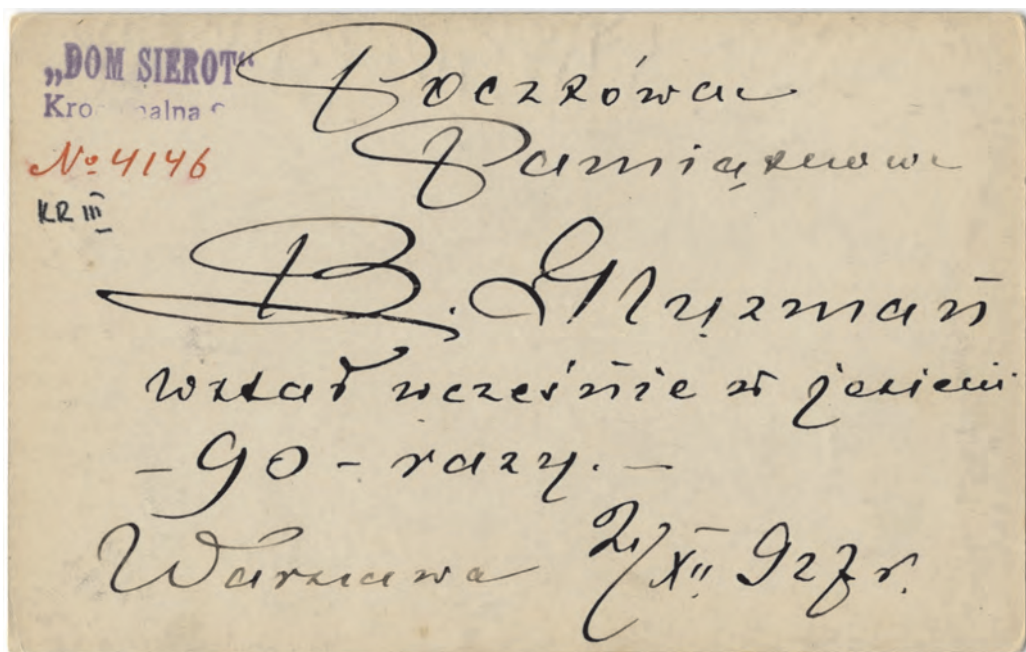 „DOM SIEROT“
Kro alna
№ 4146
KR III
Pocztówka
Pamiątkowa
B. Gruzman
wstał wcześnie w jesieni
– 90 – razy. –
Warszawa 2/XII 927 r.